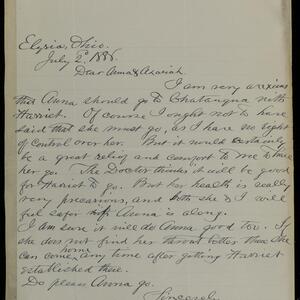 Elyria, Ohio.
July 2d. 1886.
Dear Anna & Azariah.
I am very anxious
that Anna should go to Chatauqua with
Harriet. Of course I ought not to have
said that she must go, as I have no right
of control over her. But it would certainly
be a great relief and comfort to me to have
her go. The Doctor thinks it will be good
for Harriet to go. But her health is really
very precarious, and both she & I will
feel safer if Anna is along.
I am sure it will do Anna good too. If
she does not find her throat better there she
can come home any time after getting Harriet
established there.
Do please Anna go.
Sincerely